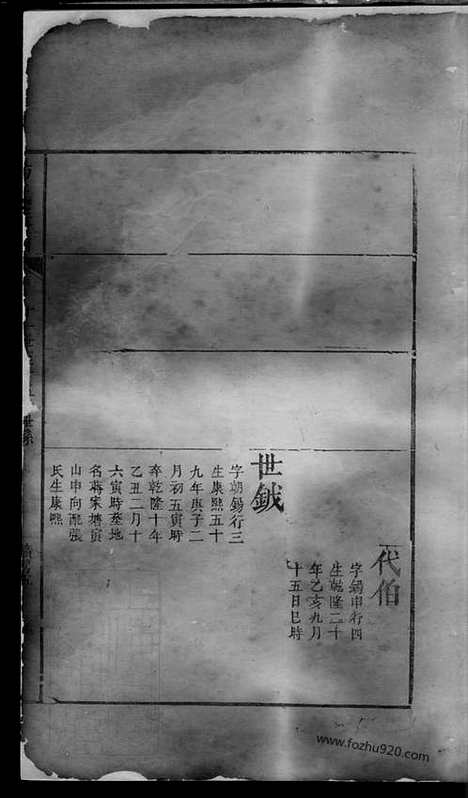 代伯
字錫申行四
生乾隆二十
年乙亥九月
十五日巳時
世鉞
字朝錫行三
生康熙五十
九年庚子二
月初五寅時
卒乾隆十年
乙丑二月十
六寅時墓地
名蔣宋塘寅
山申向配張
氏生康熙
世系
www.fozhu920.com